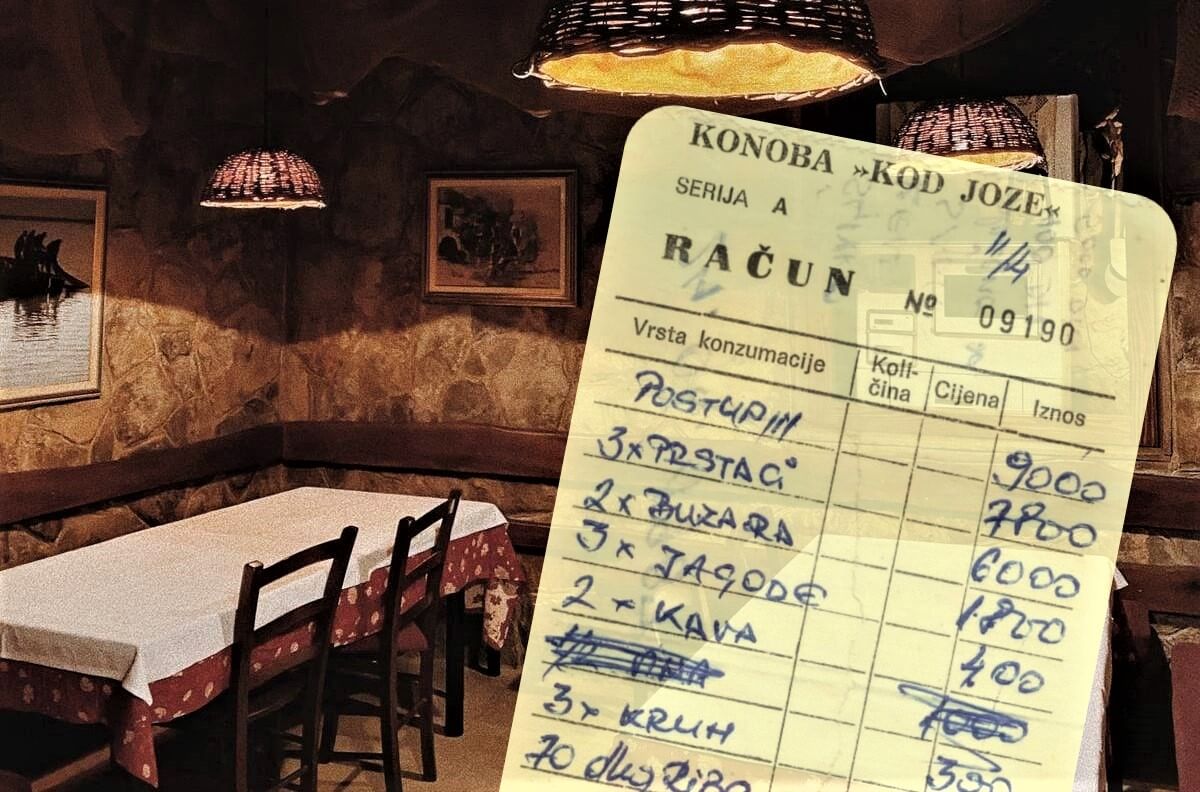 KONOBA »KOD JOZE«
SERIJA A
11/4
RAČUN
Nº 09190
Vrsta konzumacije Koli-čina Cijena Iznos
9000
3x PRSTACI 7800
2x BUZARA 6000
3x JAGODE 1800
2x KAVA 400
3x KRUH 300
70 dkg Riba